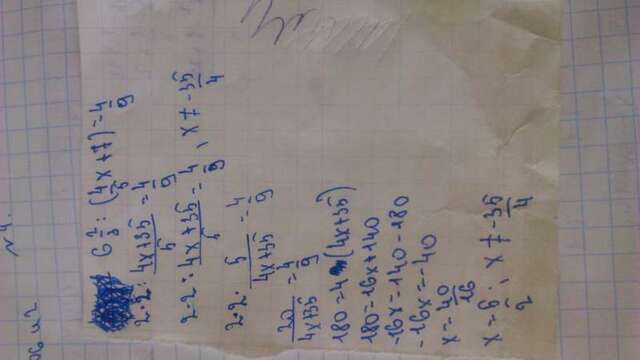 №4.
6 2/3 : (4/5x+7)=4/9
2·2: (4x+35)/5 = 4/9
2·2: (4x+35)/5 = 4/9, x ≠ -35/4
2·2· 5/(4x+35) = 4/9
20/(4x+35) = 4/9
180=4(4x+35)
180=16x+140
-16x=140-180
-16x=-40
x=40/16
x=5/2; x ≠ -35/4